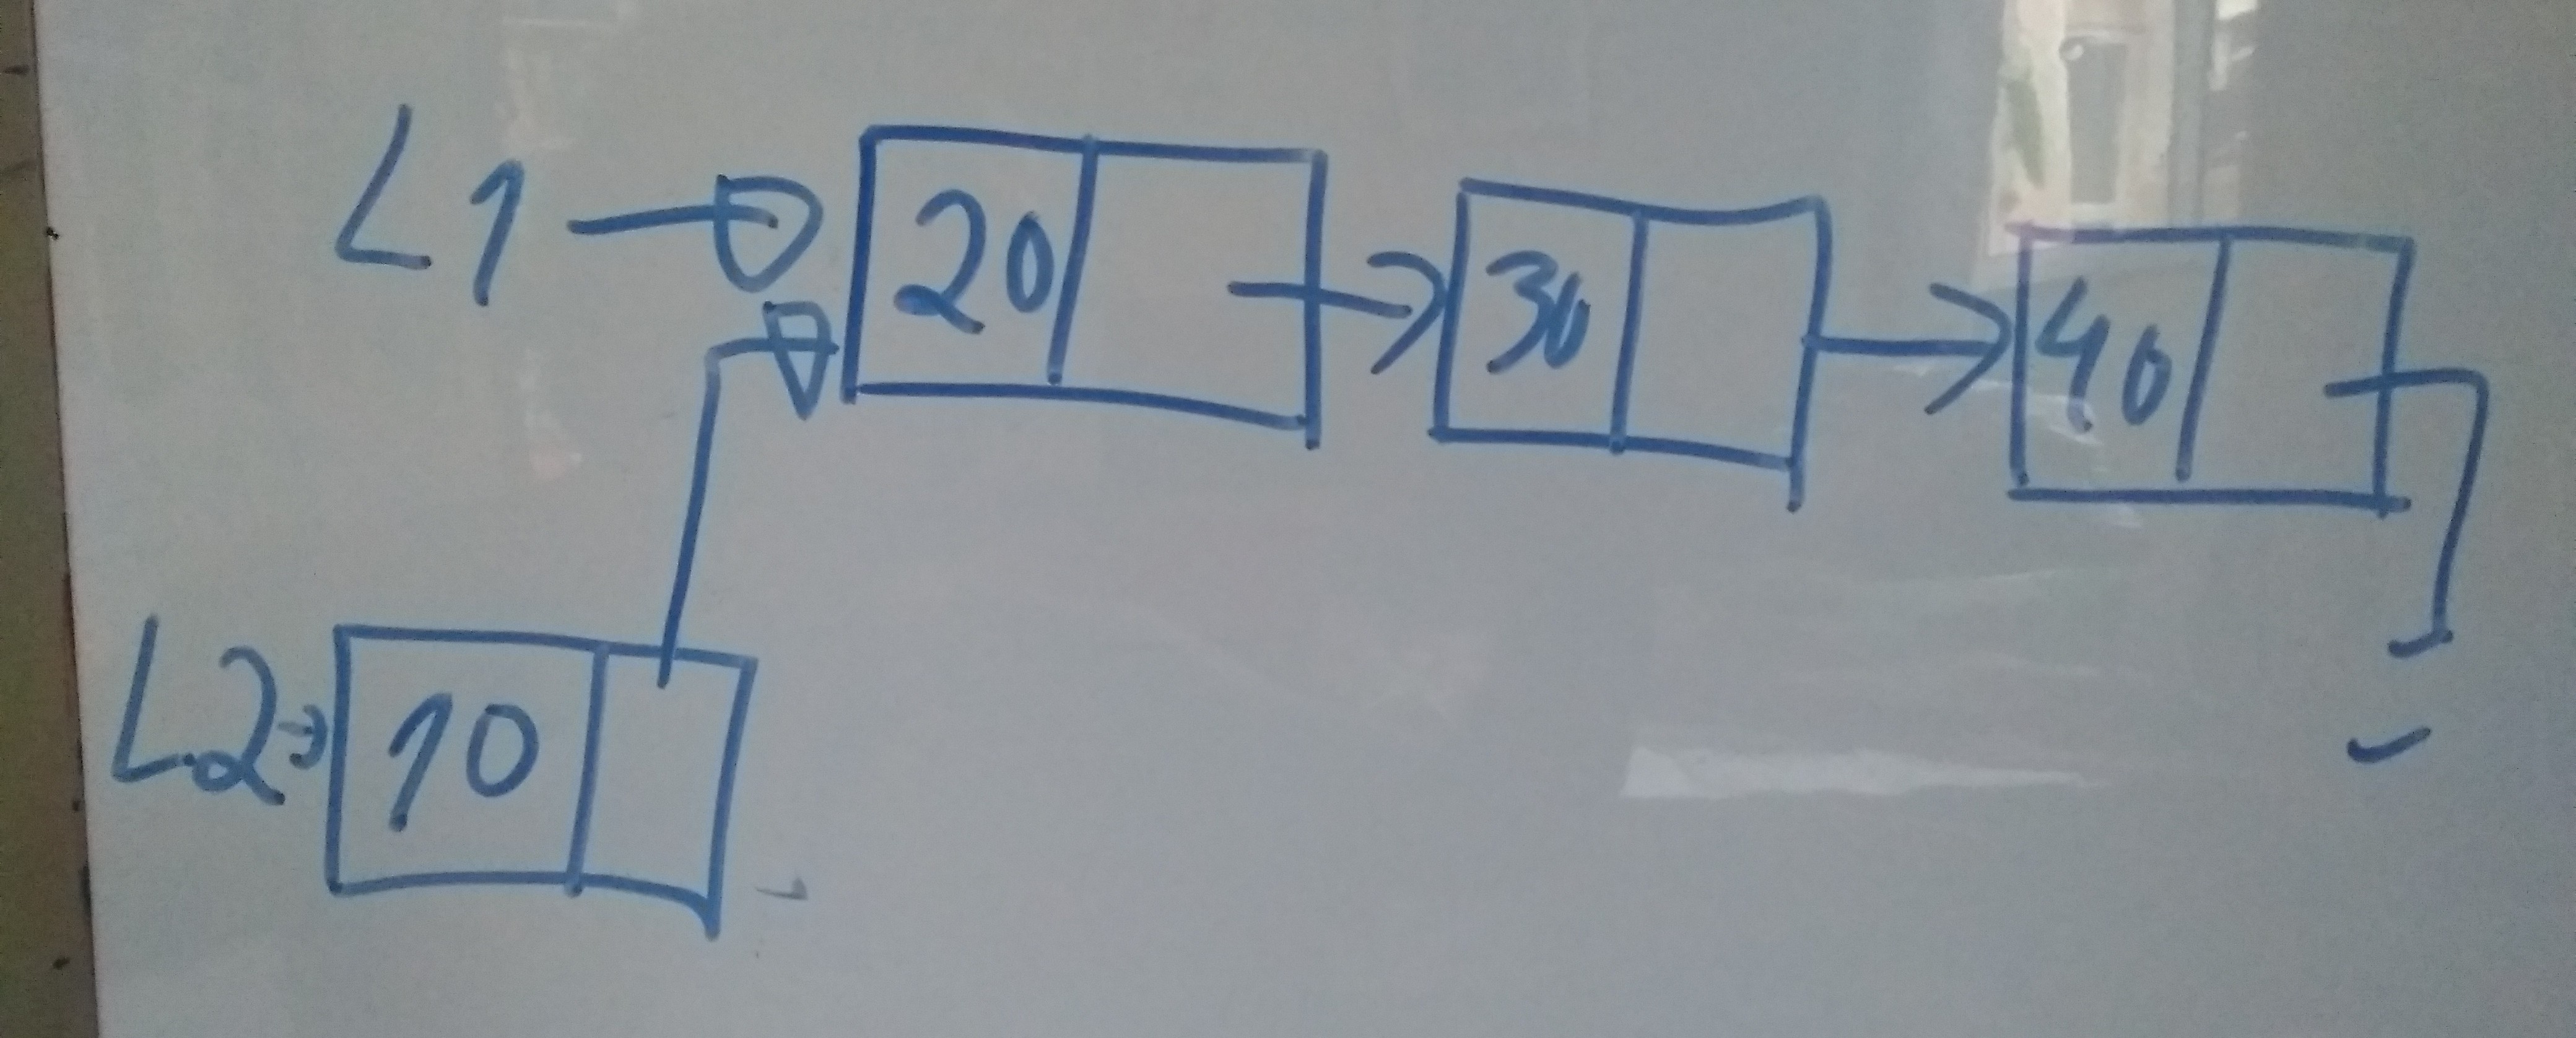 L1 20 30 40
L2 10